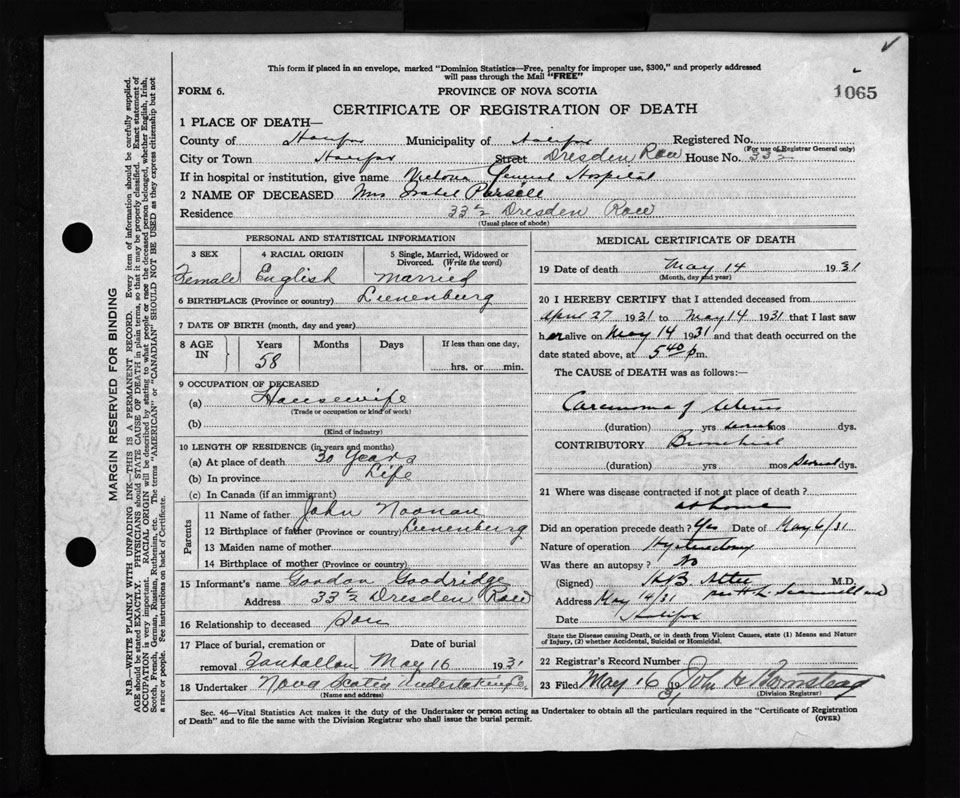 This form if placed in an envelope, marked "Dominion Statistics—Free, penalty for improper use, $300," and properly addressed
will pass through the Mail "FREE"
FORM 6.
PROVINCE OF NOVA SCOTIA
1065
CERTIFICATE OF REGISTRATION OF DEATH
1 PLACE OF DEATH—
County of Halifax Municipality of Halifax Registered No.
(For use of Registrar General only)
City or Town Halifax Street Dresden Row House No. 33½
If in hospital or institution, give name Victoria General Hospital
2 NAME OF DECEASED Mrs Isabel Pursell
Residence 33½ Dresden Row
(Usual place of abode)
PERSONAL AND STATISTICAL INFORMATION
3 SEX 4 RACIAL ORIGIN 5 Single, Married, Widowed or Divorced. (Write the word)
Female English Married
6 BIRTHPLACE (Province or country) Lunenburg
7 DATE OF BIRTH (month, day and year)
8 AGE IN Years Months Days If less than one day,
58 hrs. or min.
9 OCCUPATION OF DECEASED
(a) Housewife
(Trade or occupation or kind of work)
(b)
(Kind of industry)
10 LENGTH OF RESIDENCE (in years and months)
(a) At place of death 30 Years
(b) In province Life
(c) In Canada (if an immigrant)
Parents
11 Name of father John Noonan
12 Birthplace of father (Province or country) Lunenburg
13 Maiden name of mother
14 Birthplace of mother (Province or country)
15 Informant's name Gordon Goodridge
Address 33½ Dresden Row
16 Relationship to deceased Son
17 Place of burial, cremation or Date of burial
removal Tantallon May 16 1931
18 Undertaker Nova Scotia Undertaking Co.
(Name and address)
MEDICAL CERTIFICATE OF DEATH
19 Date of death May 14 1931
(Month, day and year)
20 I HEREBY CERTIFY that I attended deceased from
April 27 1931 to May 14 1931 that I last saw
her alive on May 14 1931 and that death occurred on the
date stated above, at 5 40 p m.
The CAUSE of DEATH was as follows:—
Carcinoma of Uterus
(duration) yrs several mos dys.
CONTRIBUTORY
(duration) yrs mos several dys.
21 Where was disease contracted if not at place of death?
at home
Did an operation precede death? Yes Date of May 6/31
Nature of operation Hysterectomy
Was there an autopsy? No
(Signed) H.B. Atlee M.D.
Address May 14/31
Date Halifax
State the Disease causing Death, or in death from Violent Causes, state (1) Means and Nature
of Injury, (2) whether Accidental, Suicidal or Homicidal.
22 Registrar's Record Number
23 Filed May 16 31 John H
(Division Registrar)
Sec. 46—Vital Statistics Act makes it the duty of the Undertaker or person acting as Undertaker to obtain all the particulars required in the "Certificate of Registration
of Death" and to file the same with the Division Registrar who shall issue the burial permit.
(OVER)
MARGIN RESERVED FOR BINDING
N.B.—WRITE PLAINLY WITH UNFADING INK—THIS IS A PERMANENT RECORD. Every item of information should be carefully supplied.
AGE should be stated EXACTLY. PHYSICIANS should STATE CAUSE OF DEATH in plain terms, so that it may be properly classified. Exact statement of
OCCUPATION is very important. RACIAL ORIGIN will be described by stating to what people or race the deceased person belonged, whether English, Irish,
Scotch, French, German, Russian, Ruthenian, etc. The terms "AMERICAN" or "CANADIAN" SHOULD NOT BE USED as they express citizenship but not
a race or people. See instructions on back of Certificate.